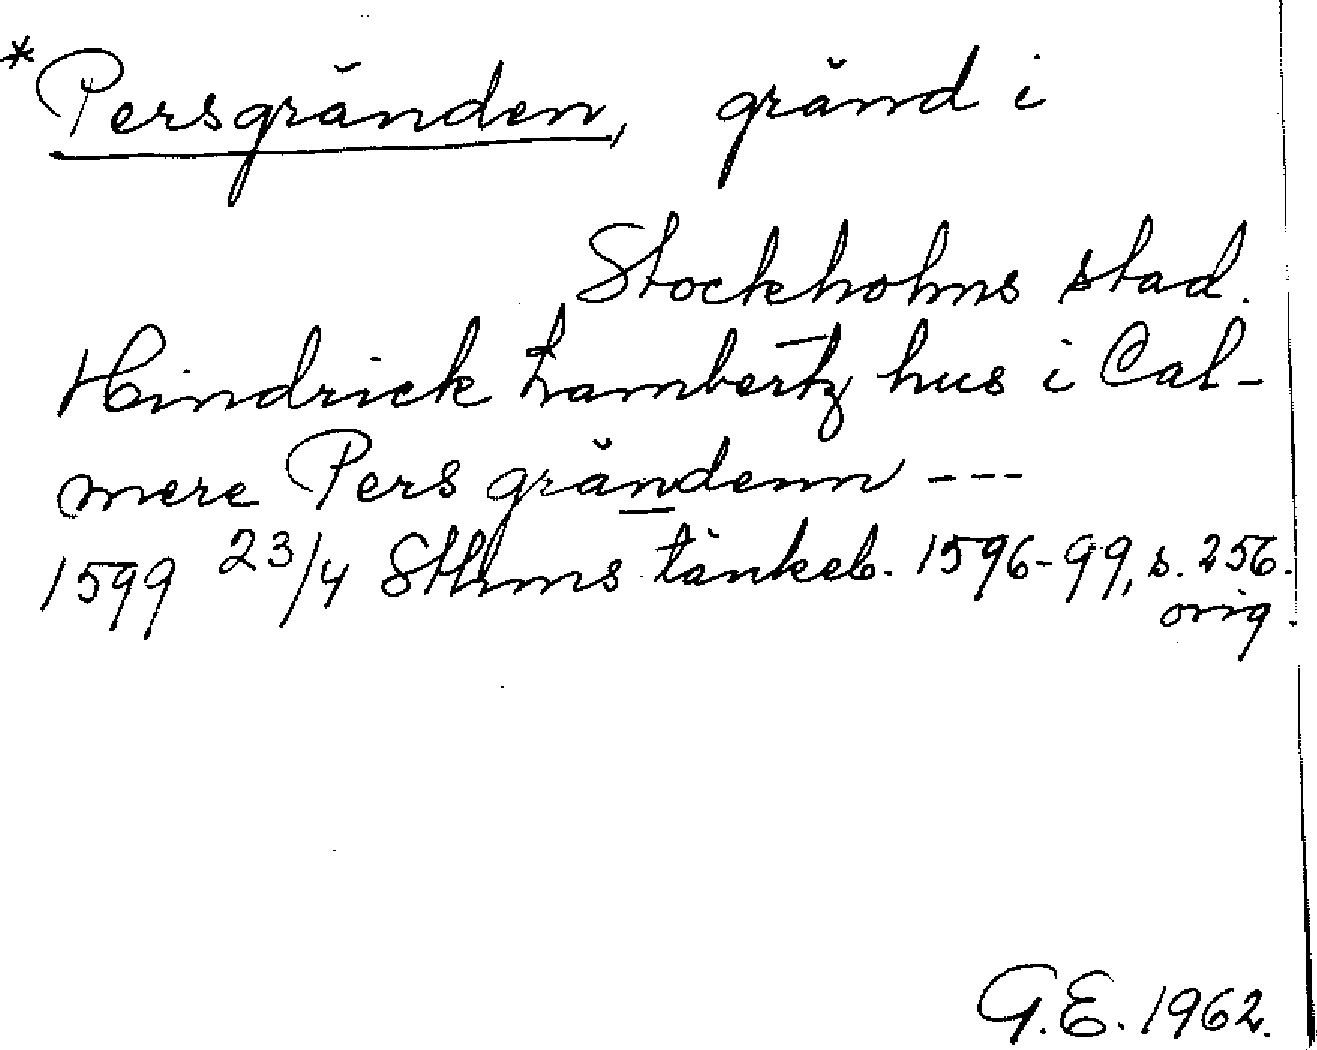 *Persgränden, gränd i
Stockholms stad.
Hindrick Lambertz hus i Cal-
mere Pers grändenn ---
1599 23/4 Sthms tänkeb. 1596-99, s. 256.
orig.
G.E. 1962.